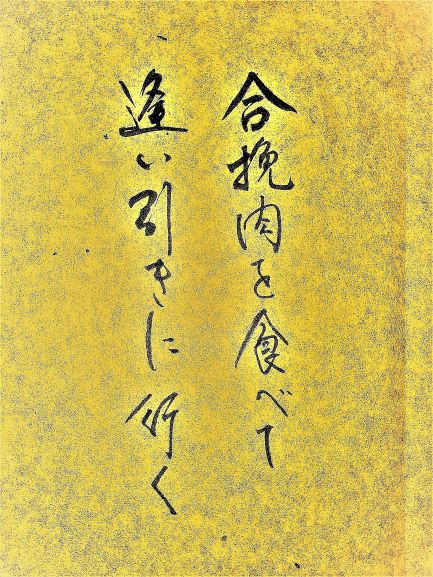 合挽肉を食べて
逢い引きに行く